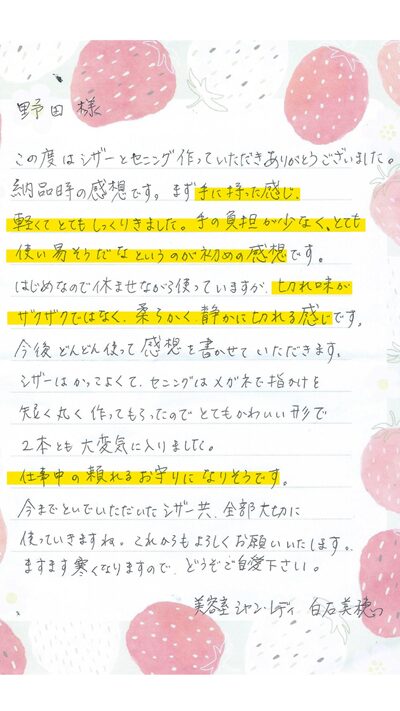 野田様
この度はシザーとセニング作っていただきありがとうございました。
納品時の感想です。まず手に持った感じ、
軽くてとてもしっくりきました。手の負担が少なく、とても
使い易そうだなというのが初めの感想です。
はじめなので休ませながら使っていますが、切れ味が
ザクザクではなく、柔らかく静かに切れる感じです。
今後どんどん使って感想を書かせていただきます。
シザーはかっこよくて、セニングはメガネで指かけを
短く丸く作ってもらったのでとてもかわいい形で
2本とも大変気に入りました。
仕事中の頼れるお守りになりそうです。
今までといでいただいたシザー共、全部大切に
使っていきますね。これからもよろしくお願いいたします。
ますます寒くなりますので、どうぞご自愛下さい。
美容室シャン・レディ 白石美穂